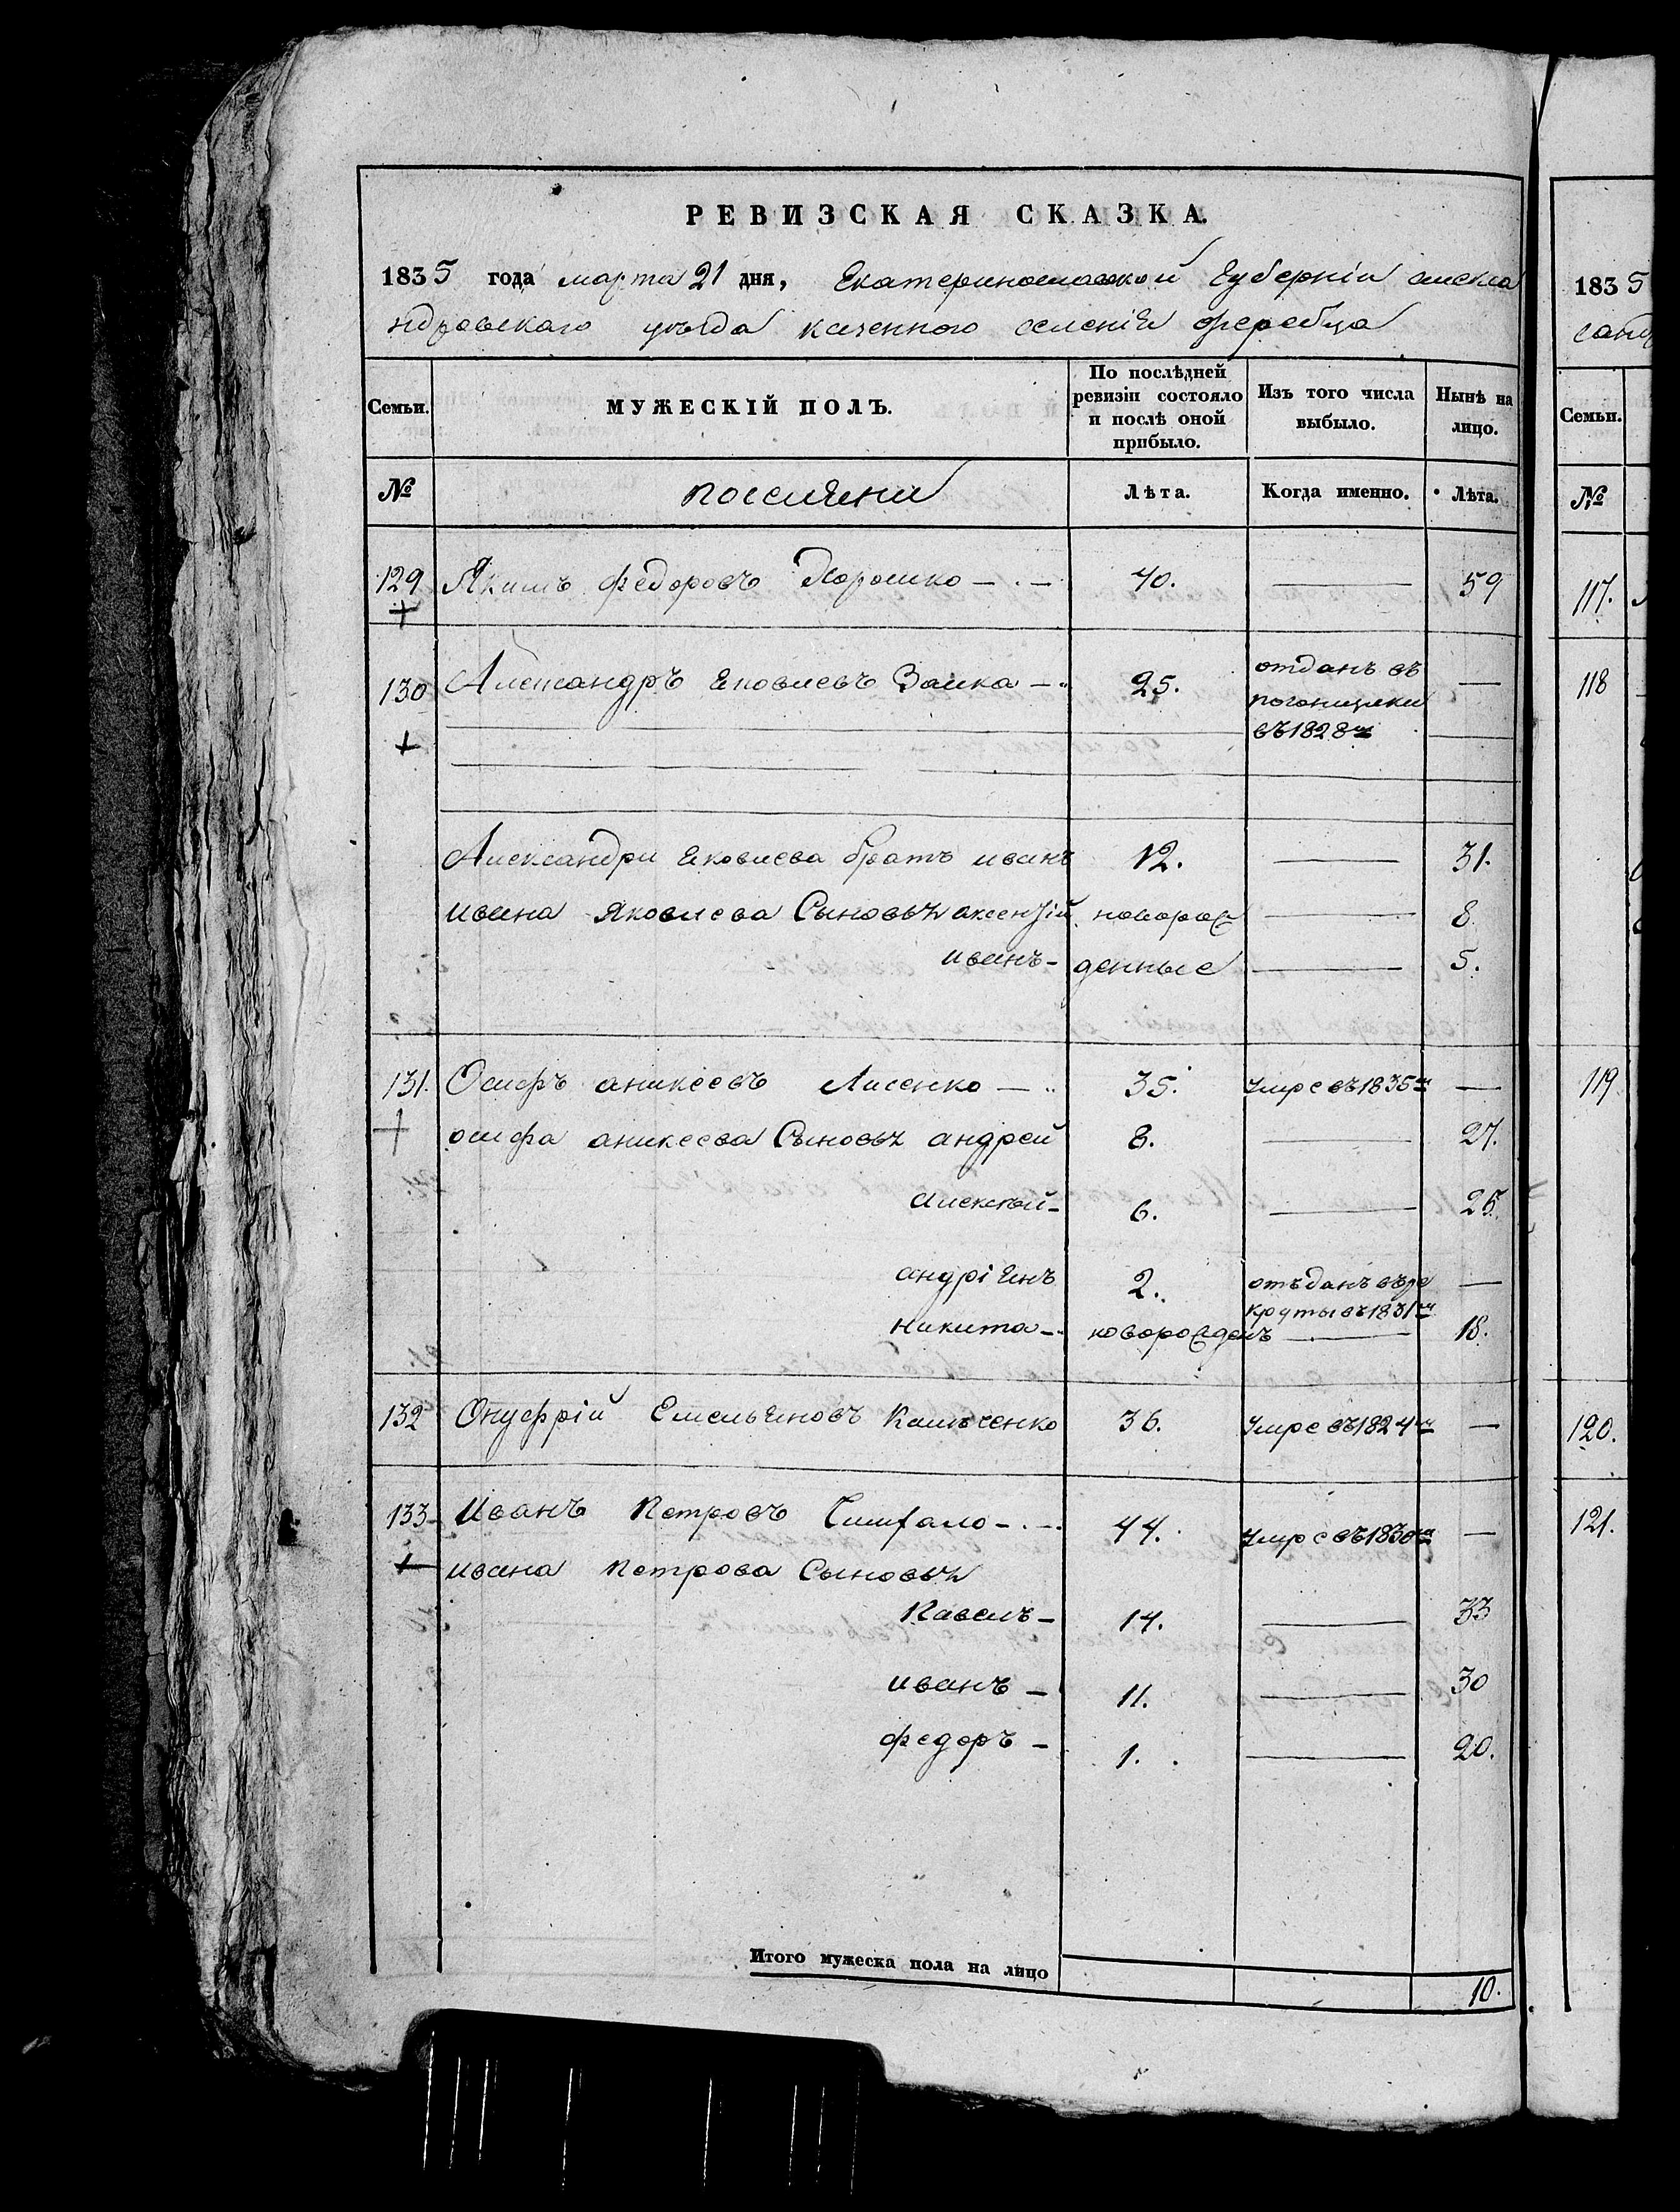 РЕВИЗСКАЯ СКАЗКА.
1835 года марта 21 дня, Екатеринославской Губерніи алекса
ндровскаго уѣзда казенного селенія жеребца
Семьи. МУЖЕСКІЙ ПОЛЪ. По послѣдней ревизіи состояло и послѣ оной прибыло. Изъ того числа выбыло. Нынѣ на лицо.
№ поселяни Лѣта. Когда именно. Лѣта.
129 Якимъ федоровъ Дорошко 40. 59
130 Александръ Яковлевъ Заика 25. отданъ въ
погонщики
въ 1828 м
Александра Яковлева братъ иванъ 12. 31.
ивана Яковлева Сыновья аксентій новорож 8.
иванъ денные 5.
131. Осифъ аникеевъ Лисенко 35. умре въ 1835 м
осифа аникеева Сыновья андрей 8. 27.
алексѣй 6. 25.
андріянъ 2. отъданъ въре
круты въ 1831 м
никита новорожденъ 18.
132 Онуфрій Емельяновъ 36. умре въ 1824 м
133 Иванъ Петровъ 44. умре въ 1830 м
ивана Петрова Сыновья
Павелъ 14. 33
иванъ 11. 30
федоръ 1. 20.
Итого мужеска пола на лицо 10.
1835
Семьи.
№
117.
118
119
120.
121.